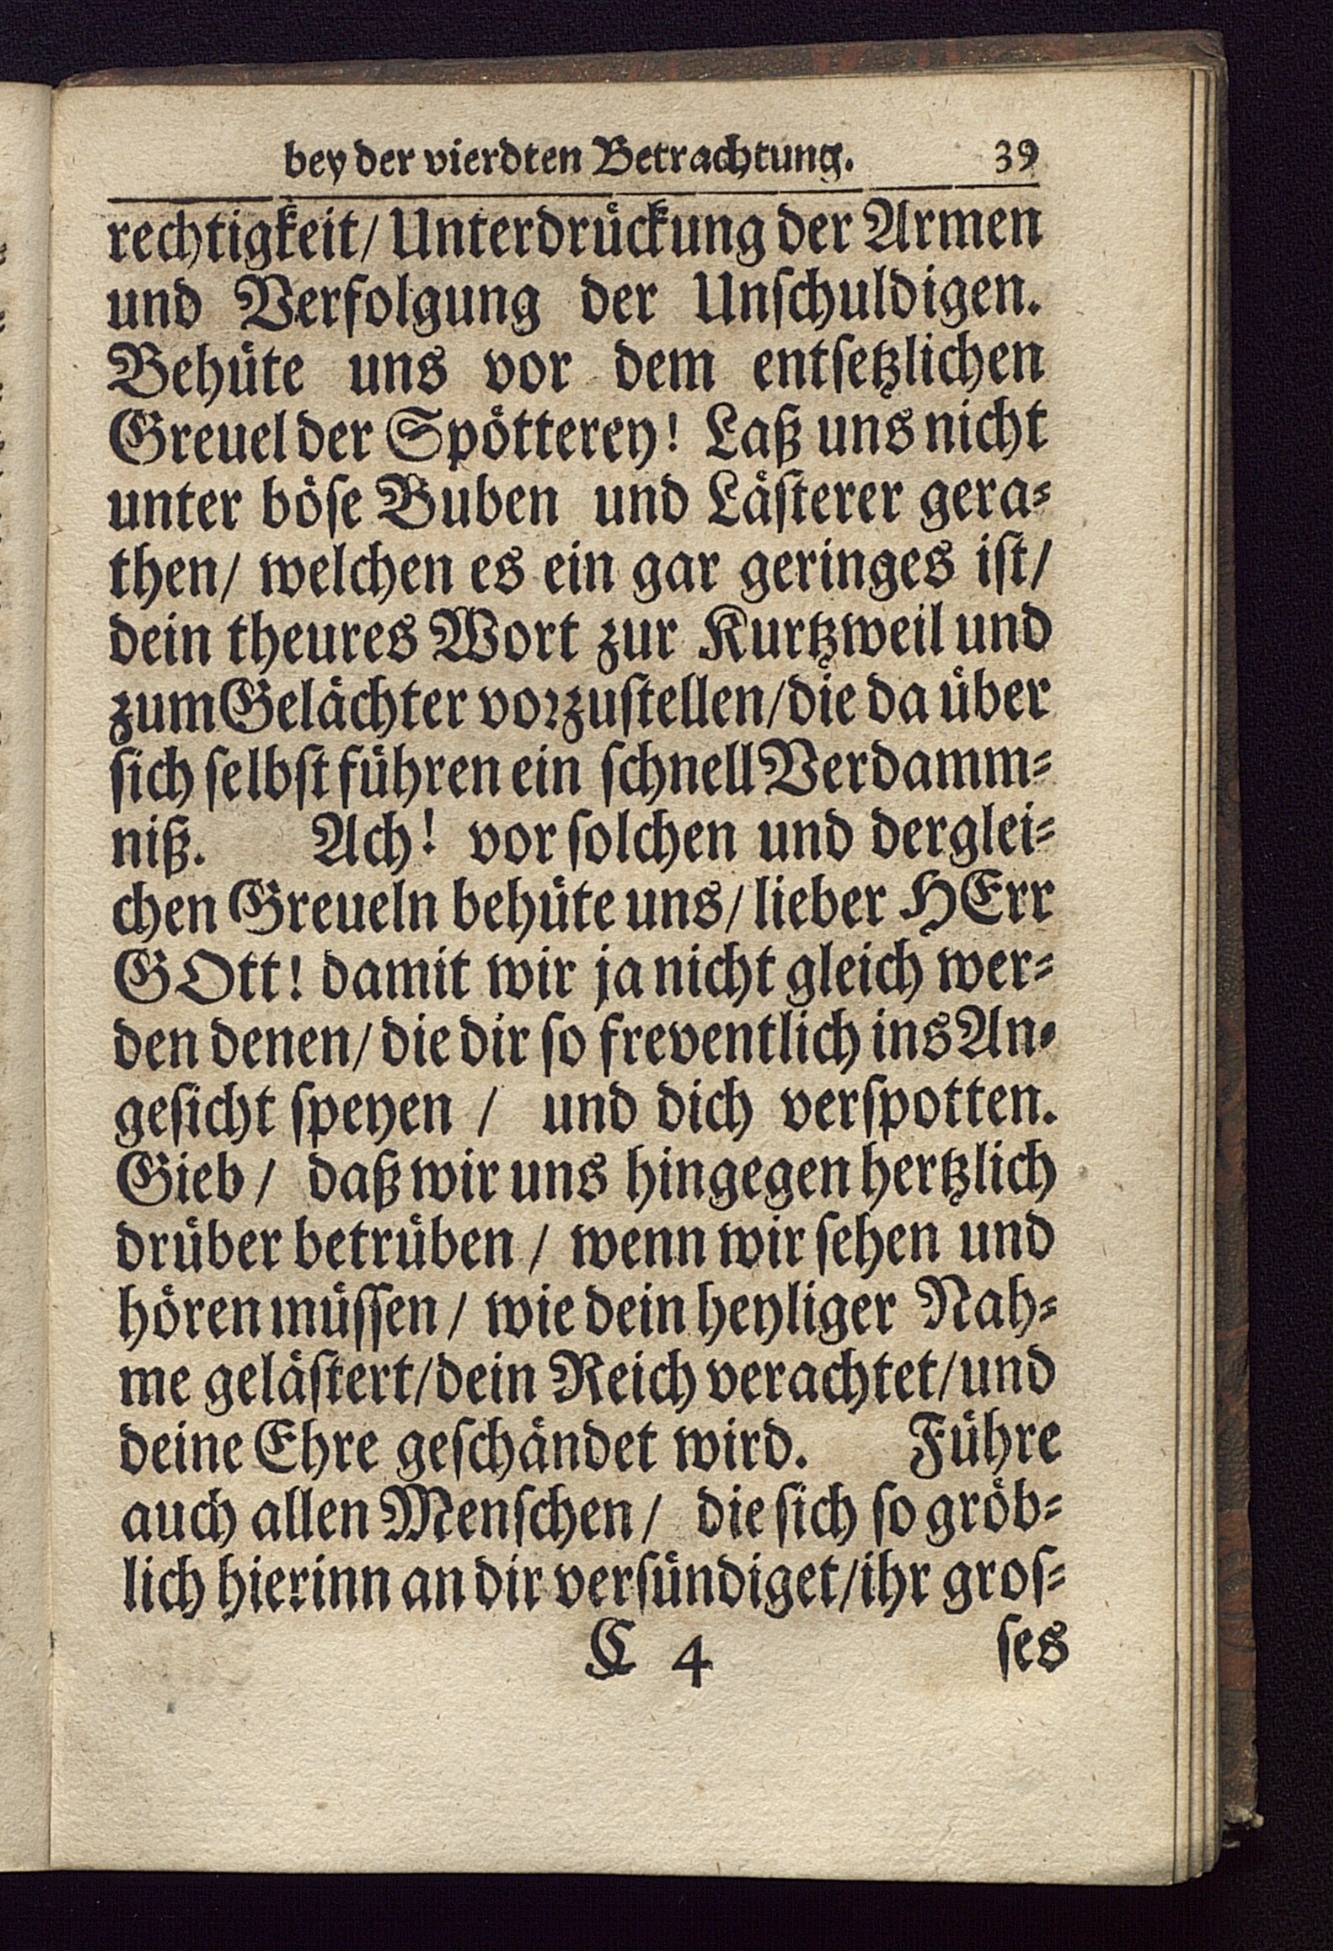 bey der vierdten Betrachtung. 39
rechtigkeit/ Unterdruͤckung der Armen
und Verfolgung der Unſchuldigen.
Behuͤte uns vor dem entſetzlichen
Greuel der Spoͤtterey! Laß uns nicht
unter boͤſe Buben und Laͤſterer gera⸗
then/ welchen es ein gar geringes iſt/
dein theures Wort zur Kurtzweil und
zum Gelaͤchter voꝛzuſtellen/die da uͤber
ſich ſelbſt fuͤhren ein ſchnell Verdamm⸗
niß. Ach! vor ſolchen und derglei⸗
chen Greueln behuͤte uns/ lieber HErr
GOtt! damit wir ja nicht gleich wer⸗
den denen/ die dir ſo freventlich ins An⸗
geſicht ſpeyen / und dich verſpotten.
Gieb/ daß wir uns hingegen hertzlich
druͤber betruͤben / wenn wir ſehen und
hoͤren muͤſſen / wie dein heyliger Nah⸗
me gelaͤſtert/dein Reich verachtet/und
deine Ehre geſchaͤndet wird. Fuͤhre
auch allen Menſchen/ die ſich ſo groͤb⸗
lich hierinn an dir verſuͤndiget/ihr groſ⸗
C 4 ſes